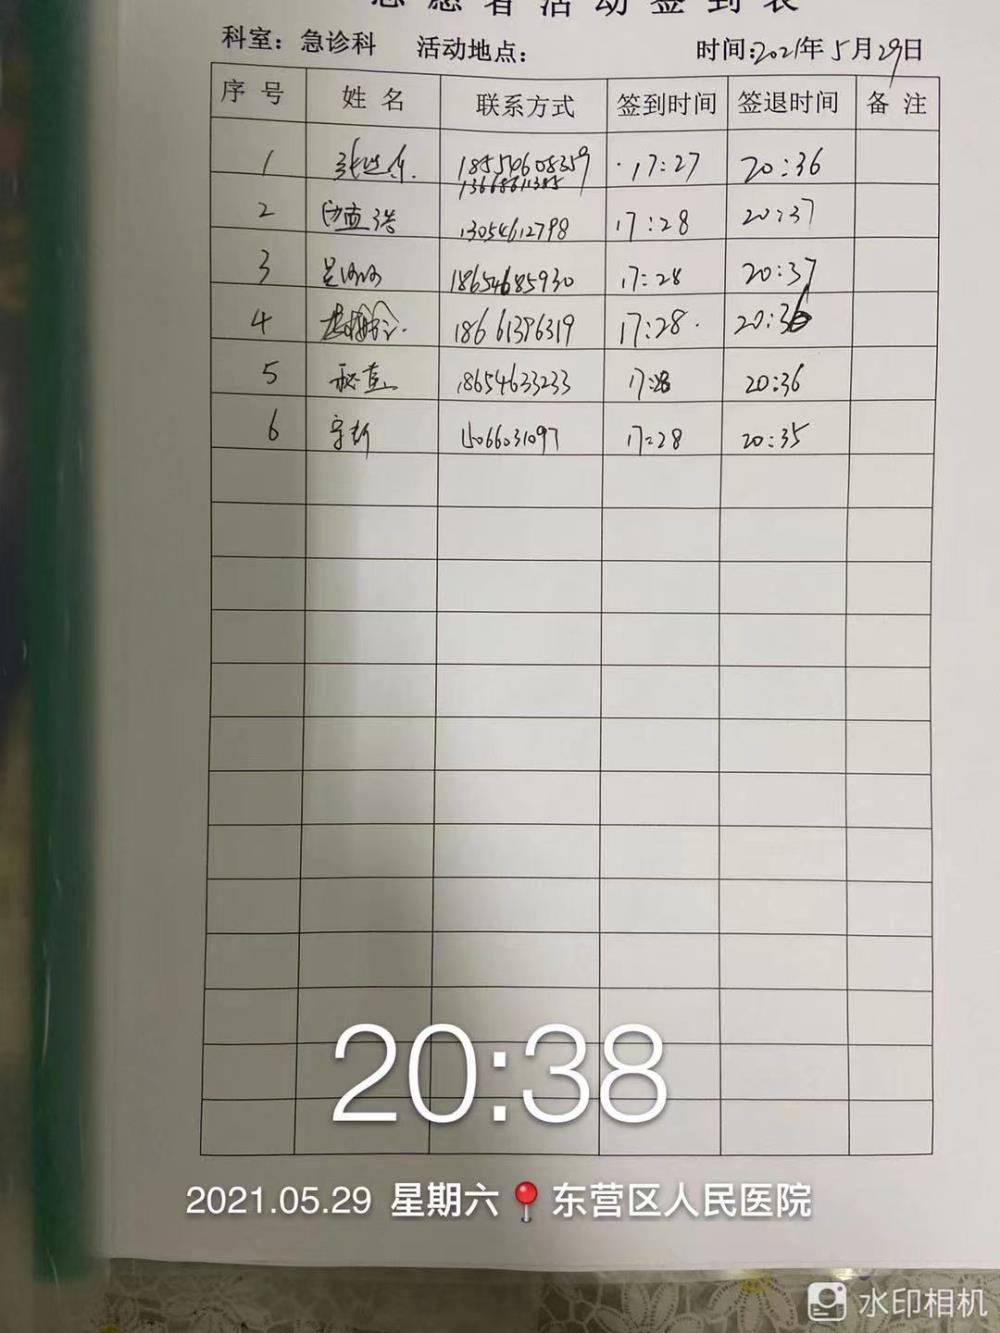 志愿者活动签到表
科室：急诊科 活动地点： 时间：2021年5月29日
序号 姓名 联系方式 签到时间 签退时间 备注
1 18554608359 17:27 20:36
2 13054612798 17:28 20:37
3 18654685930 17:28 20:37
4 18661376319 17:28 20:36
5 18654633233 17:28 20:36
6 15066031097 17:28 20:35
20:38
2021.05.29 星期六 东营区人民医院
水印相机